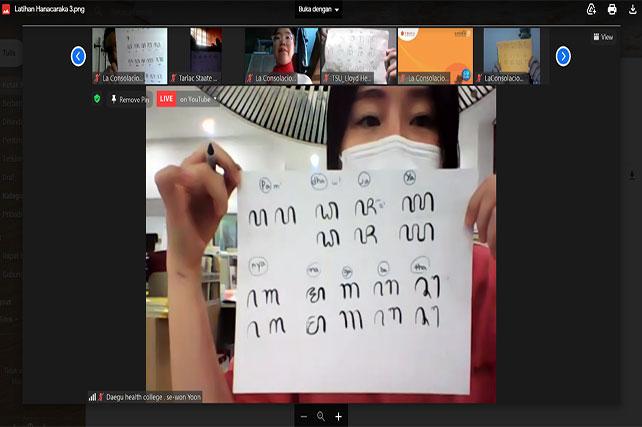 Latihan Hanacaraka 3.png
Buka dengan
View
La Consolacio...
Tarlac Staate ...
La Consolacio...
TSU_Lloyd He...
La Consolacio...
LaConsolacio...
Remove Pin
LIVE on YouTube
Pa dha Ja Ya
ꦥ ꦥ ꦝ ꦗ ꦪ
ꦝ ꦗ ꦪ
nya ma ga ba tha
ꦚ ꦩ ꦒ ꦧ ꦛ
ꦚ ꦩ ꦒ ꦧ ꦛ
Daegu health college . se-won Yoon